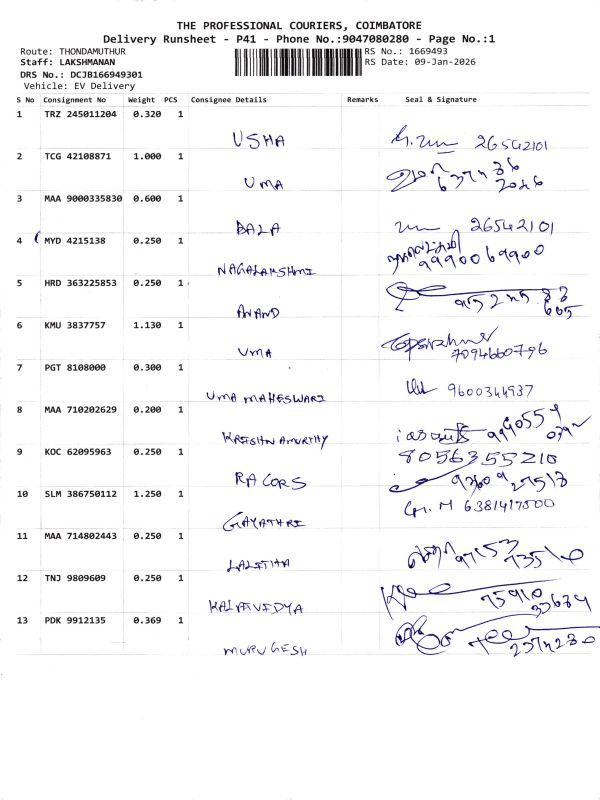 THE PROFESSIONAL COURIERS, COIMBATORE
Delivery Runsheet - P41 - Phone No.:9047080280 - Page No.:1
Route: THONDAMUTHUR RS No.: 1669493
Staff: LAKSHMANAN RS Date: 09-Jan-2026
DRS No.: DCJB166949301
Vehicle: EV Delivery
S No Consignment No Weight PCS Consignee Details Remarks Seal & Signature
1 TRZ 245011204 0.320 1
USHA 26542101
2 TCG 42108871 1.000 1
UMA
3 MAA 9000335830 0.600 1
BALA 26542101
4 MYD 4215138 0.250 1
NAGALAKSHMI 9990069900
5 HRD 363225853 0.250 1
ANAND
6 KMU 3837757 1.130 1
UMA 7094660796
7 PGT 8108000 0.300 1
UMA MAHESWARI 9600344937
8 MAA 710202629 0.200 1
KRISHNAMURTHY
9 KOC 62095963 0.250 1 8056355210
RACORS
10 SLM 386750112 1.250 1 G. M 6381417500
GAYATHRI
11 MAA 714802443 0.250 1
LALITHA
12 TNJ 9809609 0.250 1
KALAIVIDYA
13 PDK 9912135 0.369 1
MURUGESH